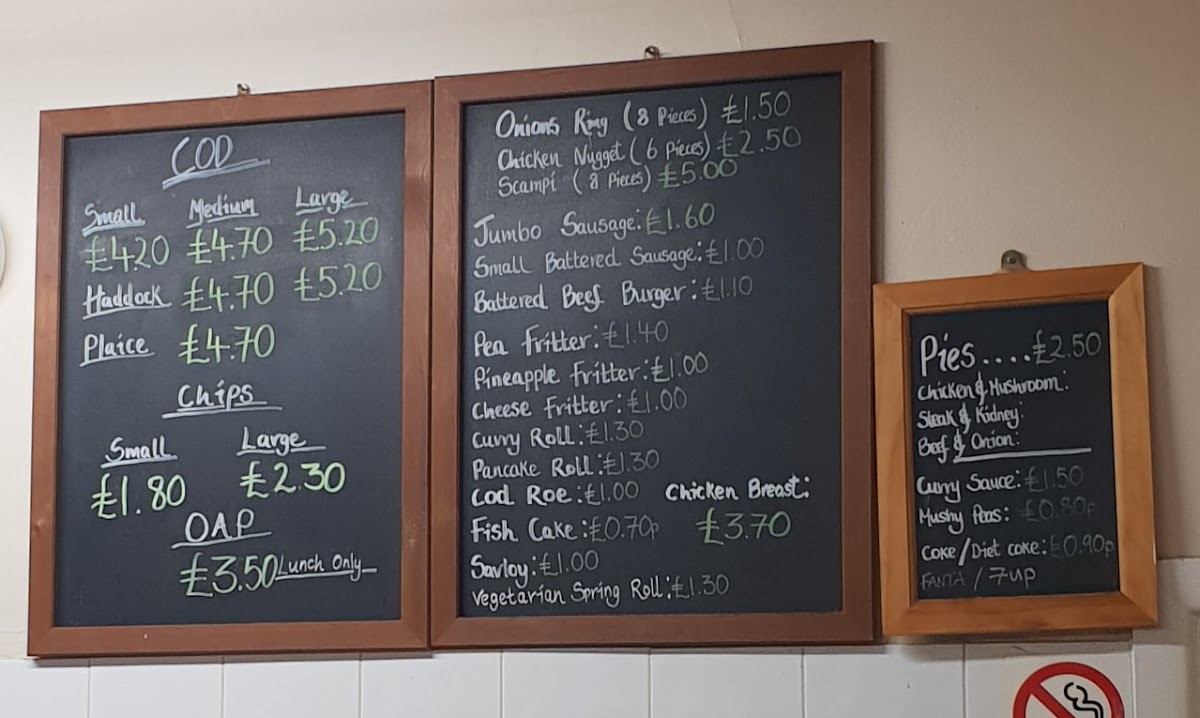 COD
Small Medium Large
£4.20 £4.70 £5.20
Haddock £4.70 £5.20
Plaice £4.70
Chips
Small Large
£1.80 £2.30
OAP
£3.50 Lunch Only
Onions Ring (8 Pieces) £1.50
Chicken Nugget (6 Pieces) £2.50
Scampi (8 Pieces) £5.00
Jumbo Sausage: £1.60
Small Battered Sausage: £1.00
Battered Beef Burger: £1.10
Pea Fritter: £1.40
Pineapple Fritter: £1.00
Cheese Fritter: £1.00
Curry Roll: £1.30
Pancake Roll: £1.30
Cod Roe: £1.00 Chicken Breast:
Fish Cake: £0.70p £3.70
Savloy: £1.00
Vegetarian Spring Roll: £1.30
Pies....£2.50
Chicken & Mushroom:
Steak & Kidney:
Beef & Onion:
Curry Sauce: £1.50
Mushy Peas: £0.80p
Coke/Diet coke: £0.90p
FANTA / 7up